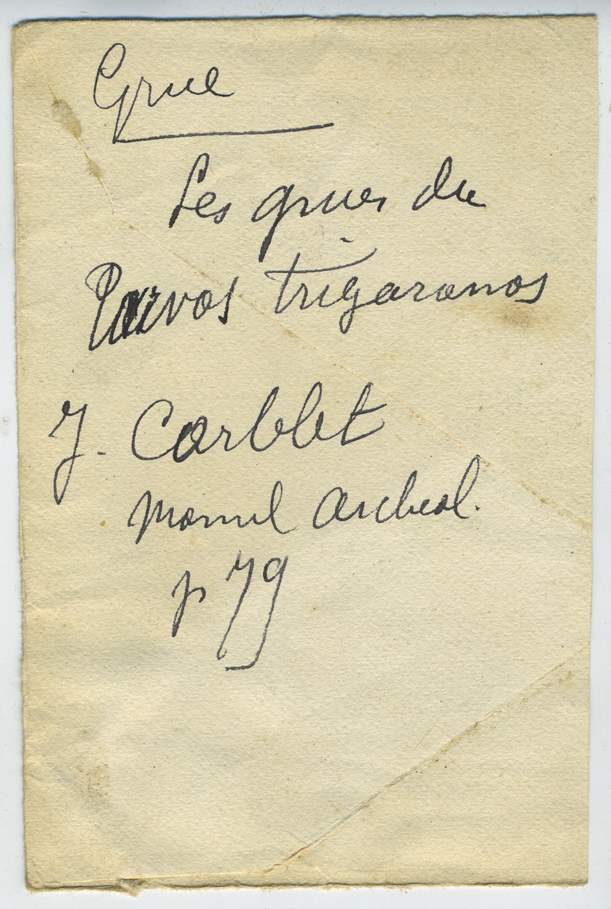 Grue
Les grues du
Tarvos trigaranos
J. Corblet
Manuel archéol.
p 79